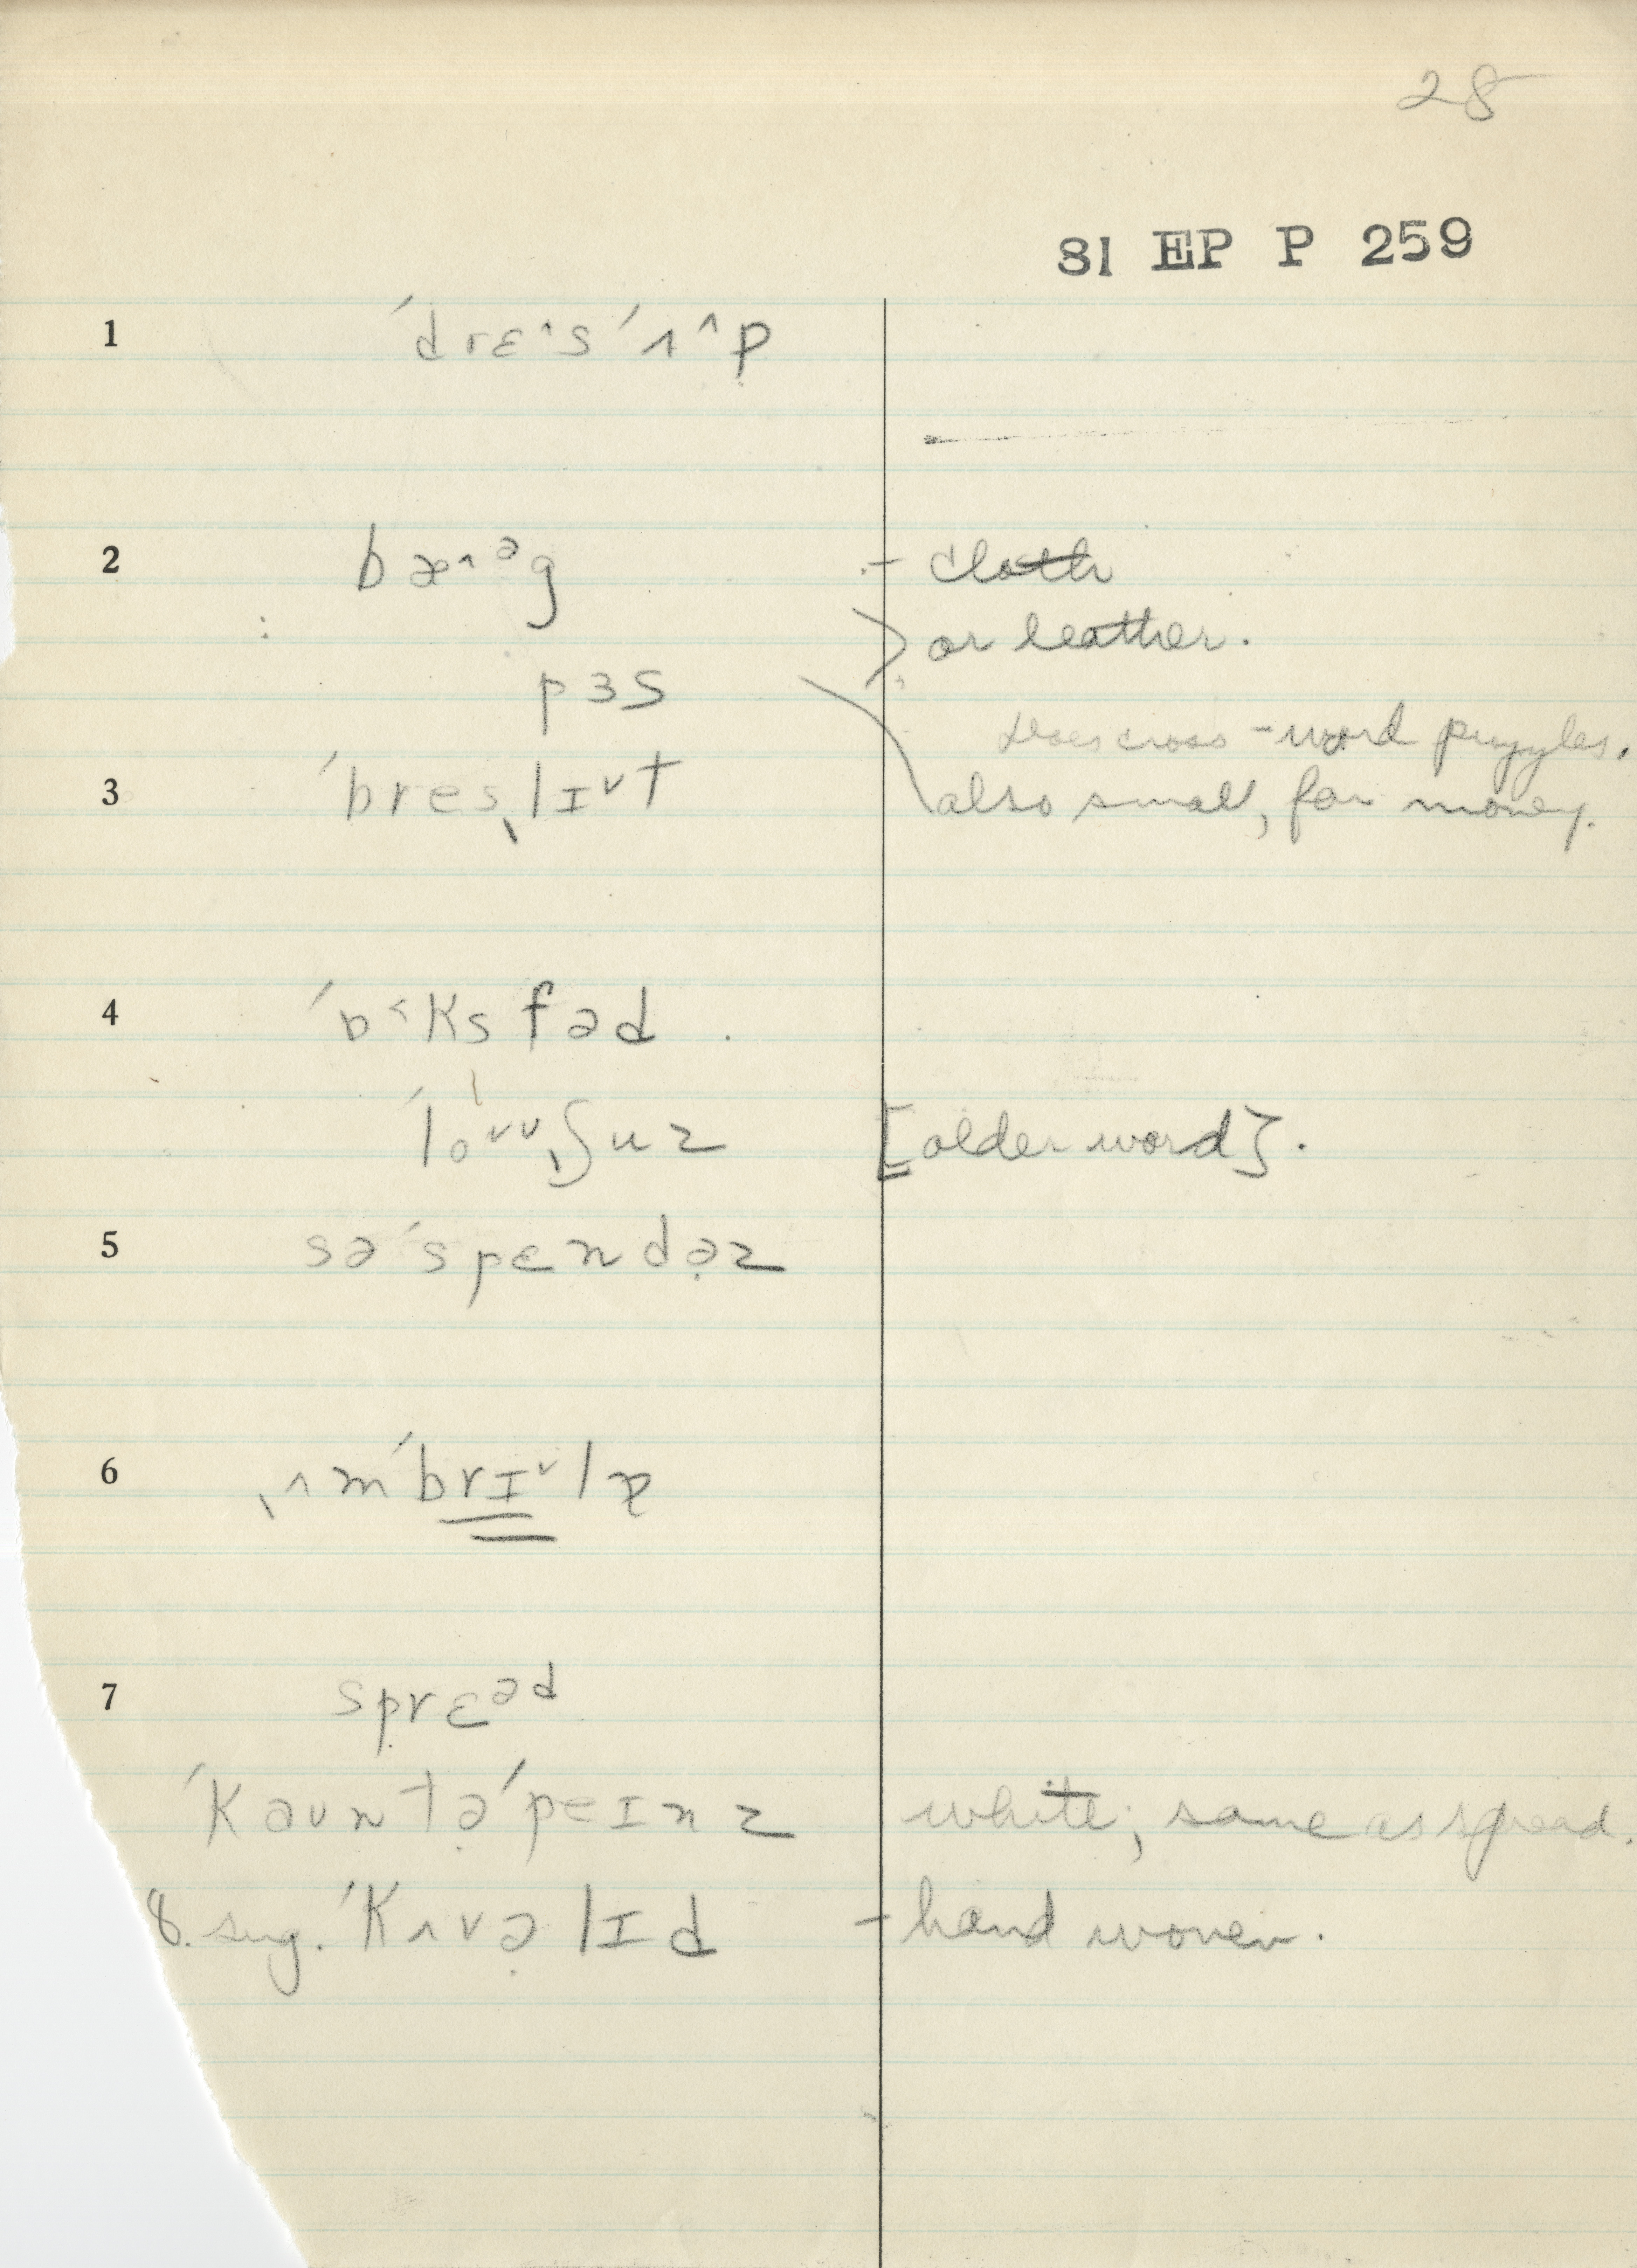 28
81 EP P 259
1 ´drɛ^s ´ʌ^p
2 bæ^ᵊg - cloth
or leather.
pɜs
does cross-word puzzles.
3 ´bresˎlɪˇt also small, for money.
4 ´ɒ˂ksfəd.
´loˇˇˎʃuz [older word].
5 sə´spɛndə̣z
6 ˎʌm´brɪˇlə̣
7 sprɛᵊd
´kaʊntə̣´peɪnz white; same as spread.
8. sug. ´kʌvə̣lɪd - hand woven.